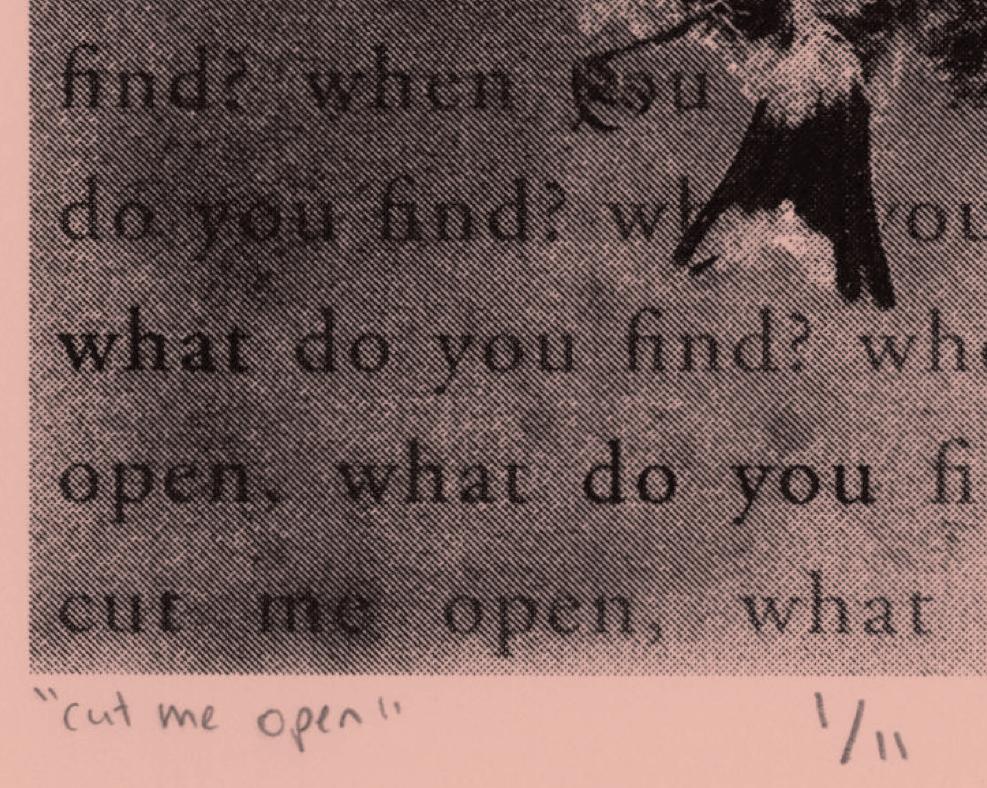 find? when you
do you find? wh you
what do you find? whe
open, what do you fi
cut me open, what
"cut me open" 1/11